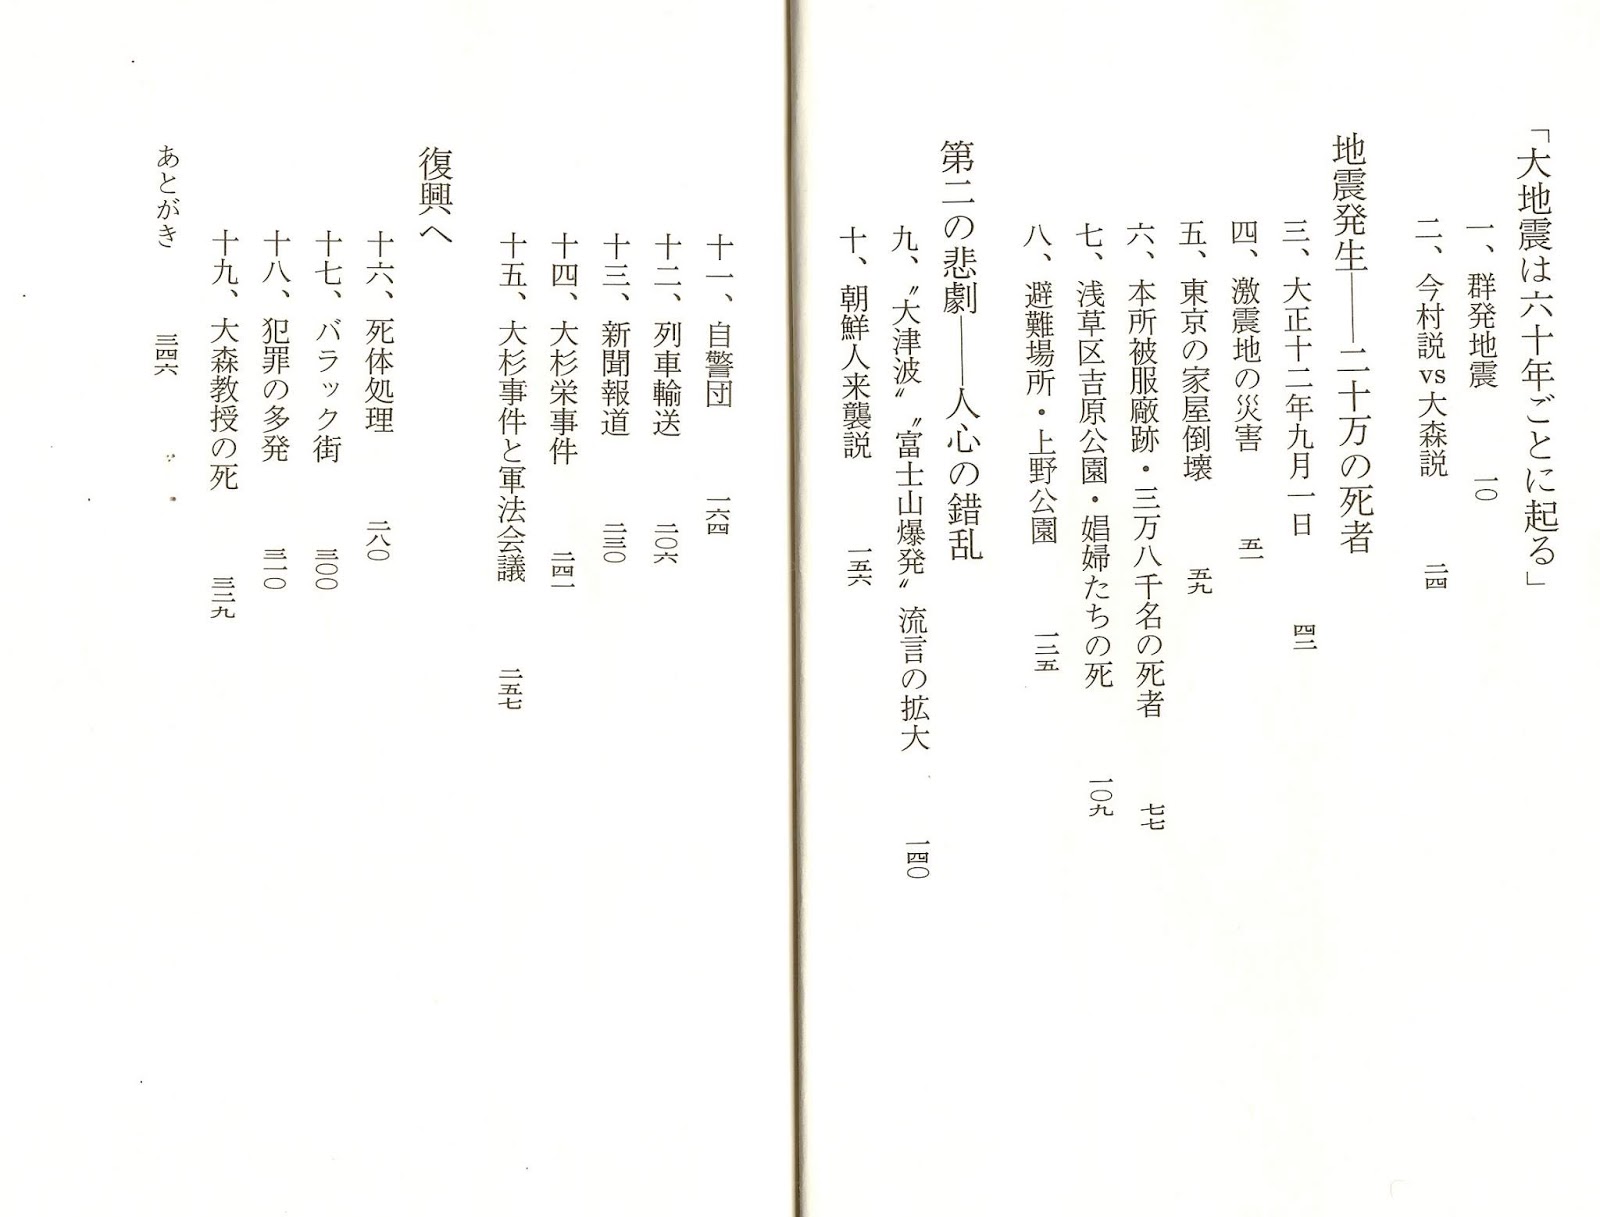 「大地震は六十年ごとに起る」
一、群発地震 一〇
二、今村説vs大森説 二四
地震発生——二十万の死者
三、大正十二年九月一日 四二
四、激震地の災害 五一
五、東京の家屋倒壊 五九
六、本所被服廠跡・三万八千名の死者 七七
七、浅草区吉原公園・娼婦たちの死 一〇九
八、避難場所・上野公園 一二五
第二の悲劇——人心の錯乱
九、〝大津波〟〝富士山爆発〟流言の拡大 一四〇
十、朝鮮人来襲説 一五六
十一、自警団 一六四
十二、列車輸送 二〇六
十三、新聞報道 二三〇
十四、大杉栄事件 二四一
十五、大杉事件と軍法会議 二五七
復興へ
十六、死体処理 二八〇
十七、バラック街 三〇〇
十八、犯罪の多発 三一〇
十九、大森教授の死 三二九
あとがき 三四六